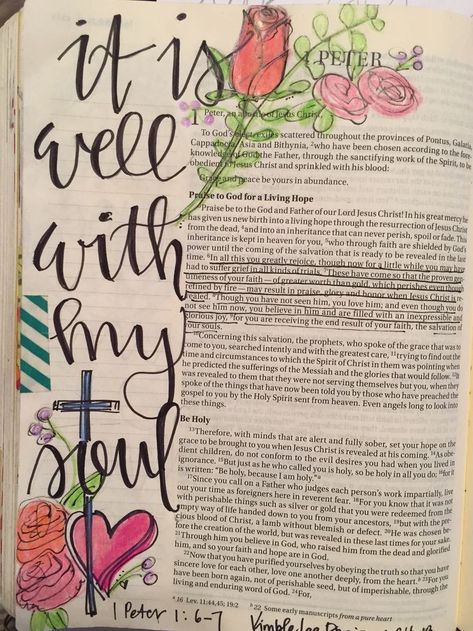 it is
well
with
my
soul
1 Peter 1:6-7
1 PETER
1 Peter, an apostle of Jesus Christ,
To God's elect, exiles scattered throughout the provinces of Pontus, Galatia,
Cappadocia, Asia and Bithynia, 2who have been chosen according to the fore-
knowledge of God the Father, through the sanctifying work of the Spirit, to be
obedient to Jesus Christ and sprinkled with his blood:
Grace and peace be yours in abundance.
Praise to God for a Living Hope
3Praise be to the God and Father of our Lord Jesus Christ! In his great mercy he
has given us new birth into a living hope through the resurrection of Jesus Christ
from the dead, 4and into an inheritance that can never perish, spoil or fade. This
inheritance is kept in heaven for you, 5who through faith are shielded by God's
power until the coming of the salvation that is ready to be revealed in the last
time. 6In all this you greatly rejoice, though now for a little while you may have
had to suffer grief in all kinds of trials. 7These have come so that the proven gen-
uineness of your faith — of greater worth than gold, which perishes even though
refined by fire — may result in praise, glory and honor when Jesus Christ is re-
vealed. 8Though you have not seen him, you love him; and even though you do
not see him now, you believe in him and are filled with an inexpressible and
glorious joy, 9for you are receiving the end result of your faith, the salvation of
your souls.
10Concerning this salvation, the prophets, who spoke of the grace that was to
come to you, searched intently and with the greatest care, 11trying to find out the
time and circumstances to which the Spirit of Christ in them was pointing when
he predicted the sufferings of the Messiah and the glories that would follow. 12It
was revealed to them that they were not serving themselves but you, when they
spoke of the things that have now been told you by those who have preached the
gospel to you by the Holy Spirit sent from heaven. Even angels long to look into
these things.
Be Holy
13Therefore, with minds that are alert and fully sober, set your hope on the
grace to be brought to you when Jesus Christ is revealed at his coming. 14As obe-
dient children, do not conform to the evil desires you had when you lived in
ignorance. 15But just as he who called you is holy, so be holy in all you do; 16for it
is written: "Be holy, because I am holy."a
17Since you call on a Father who judges each person's work impartially, live
out your time as foreigners here in reverent fear. 18For you know that it was not
with perishable things such as silver or gold that you were redeemed from the
empty way of life handed down to you from your ancestors, 19but with the pre-
cious blood of Christ, a lamb without blemish or defect. 20He was chosen be-
fore the creation of the world, but was revealed in these last times for your sake.
21Through him you believe in God, who raised him from the dead and glorified
him, and so your faith and hope are in God.
22Now that you have purified yourselves by obeying the truth so that you have
sincere love for each other, love one another deeply, from the heart.b 23For you
have been born again, not of perishable seed, but of imperishable, through the
living and enduring word of God. 24For,
a 16 Lev. 11:44,45; 19:2 b 22 Some early manuscripts from a pure heart